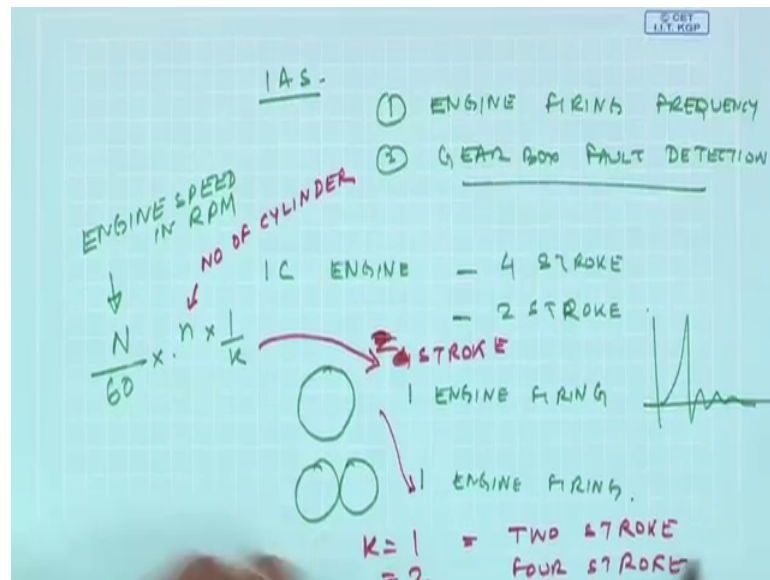 © CET
I.I.T. KGP
IAS.
① ENGINE FIRING FREQUENCY
② GEAR BOX FAULT DETECTION
ENGINE SPEED
IN RPM
NO OF CYLINDER
IC ENGINE - 4 STROKE
- 2 STROKE
N/60 × n × 1/k
2 STROKE
1 ENGINE FIRING
1 ENGINE FIRING.
K = 1 = TWO STROKE
= 2 FOUR STROKE